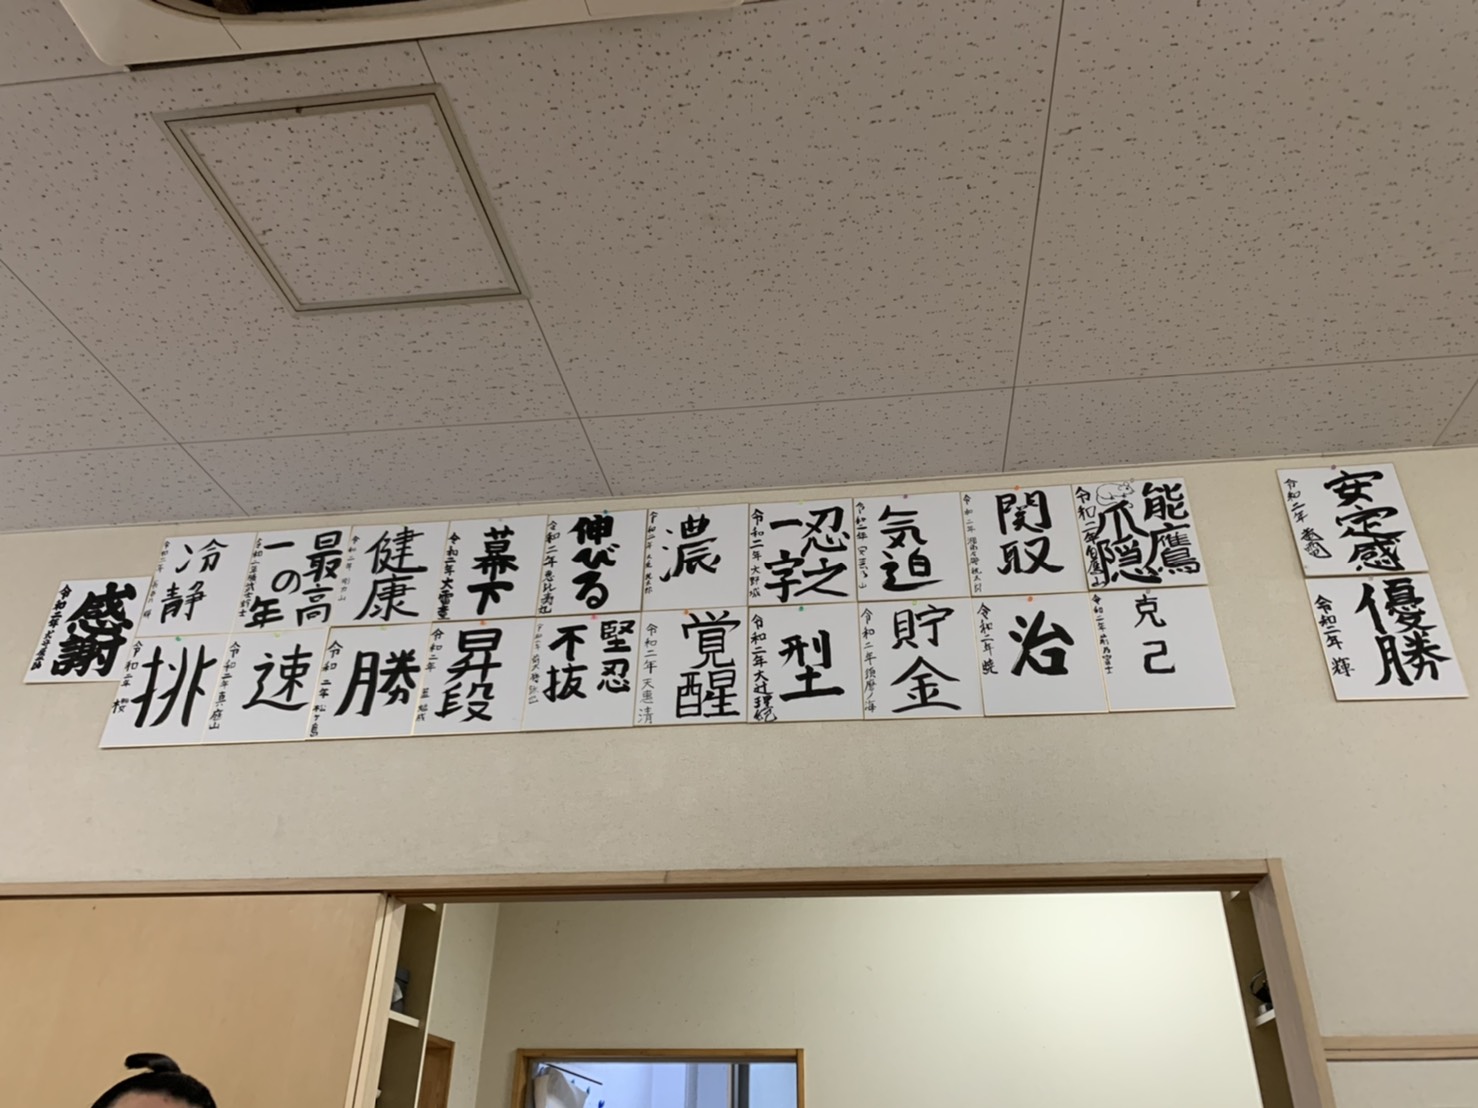 安定感
令和二年
優勝
令和二年 輝
能鷹
爪隠
令和二年
関取
令和二年
気迫
令和二年
忍之
一字
令和二年 大野城
濃
令和二年
伸びる
令和二年 恵比寿丸
幕下
令和二年 大雷童
健康
令和二年
最高
一の年
令和二年
冷静
令和二年
克己
令和二年
治
令和二年
貯金
令和二年 須磨ノ海
型
令和二年 大辻理紀
覚醒
令和二年 天恵 清
堅忍
不抜
令和二年
昇段
令和二年
勝
令和二年 松ヶ島
速
令和二年 真庭山
挑
令和二年 桜
感謝
令和二年